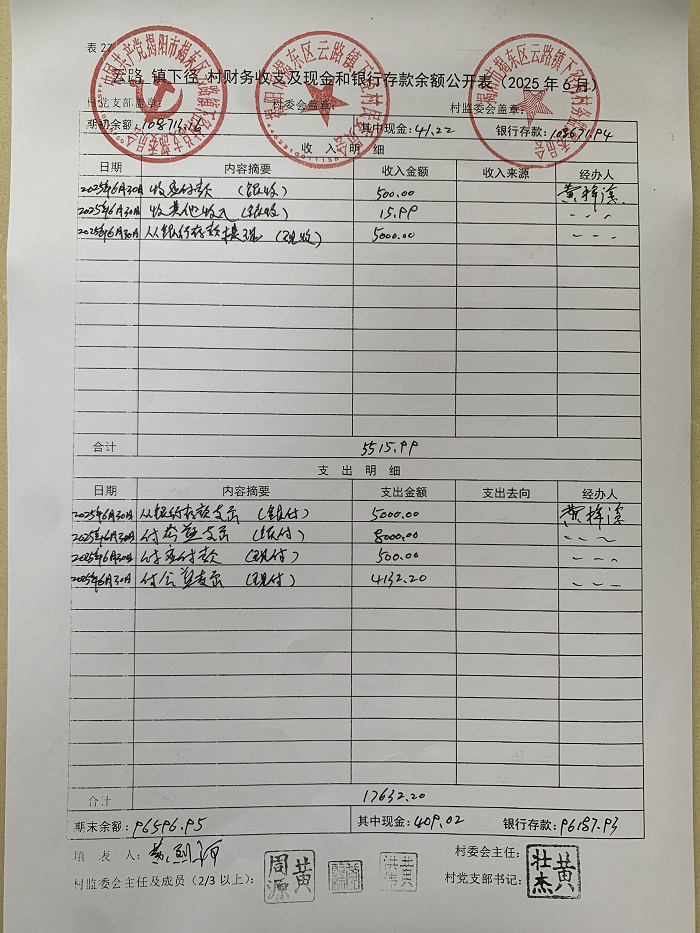 表 27
云路 镇下径 村财务收支及现金和银行存款余额公开表（2025 年 6 月）
村党支部盖章： 村委会盖章： 村监委会盖章：
期初余额：108713.16 其中现金：41.22 银行存款：108671.94
收 入 明 细
日期 内容摘要 收入金额 收入来源 经办人
2025年6月30日 收应付款 （银收） 500.00 黄梓溪
2025年6月30日 收其他收入（银收） 15.99 〃
2025年6月30日 从银行存款提现 （现收） 5000.00 〃
合计 5515.99
支 出 明 细
日期 内容摘要 支出金额 支出去向 经办人
2025年6月30日 从银行存款支出 （银付） 5000.00 黄梓溪
2025年6月30日 付公益支出 （银付） 8000.00
2025年6月30日 付应付款 （现付） 500.00
2025年6月30日 付公益支出 （现付） 4132.20
合计 17632.20
期末余额：96596.95 其中现金：409.02 银行存款：96187.93
填 表 人：
村委会主任：
村监委会主任及成员（2/3 以上）： 黄周源 村党支部书记： 黄壮杰